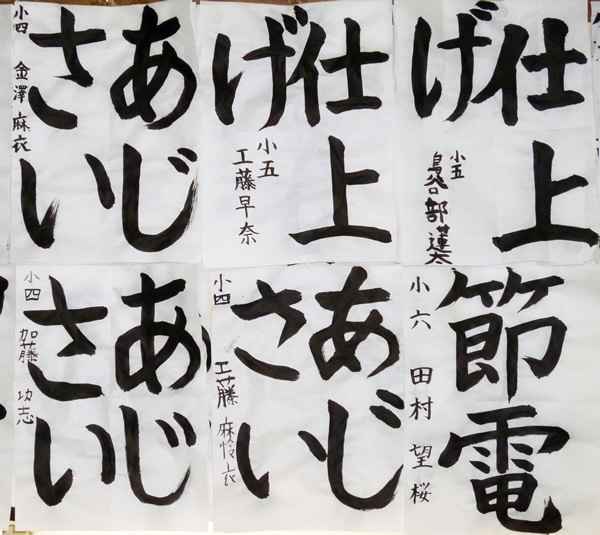 仕上
げ
小五
鳥谷部蓮太
仕上
げ
小五
工藤早奈
あじ
さい
小四 金澤麻衣
節電
小六 田村望桜
あじ
さい
小四 工藤麻怜衣
あじ
さい
小四 加藤功志